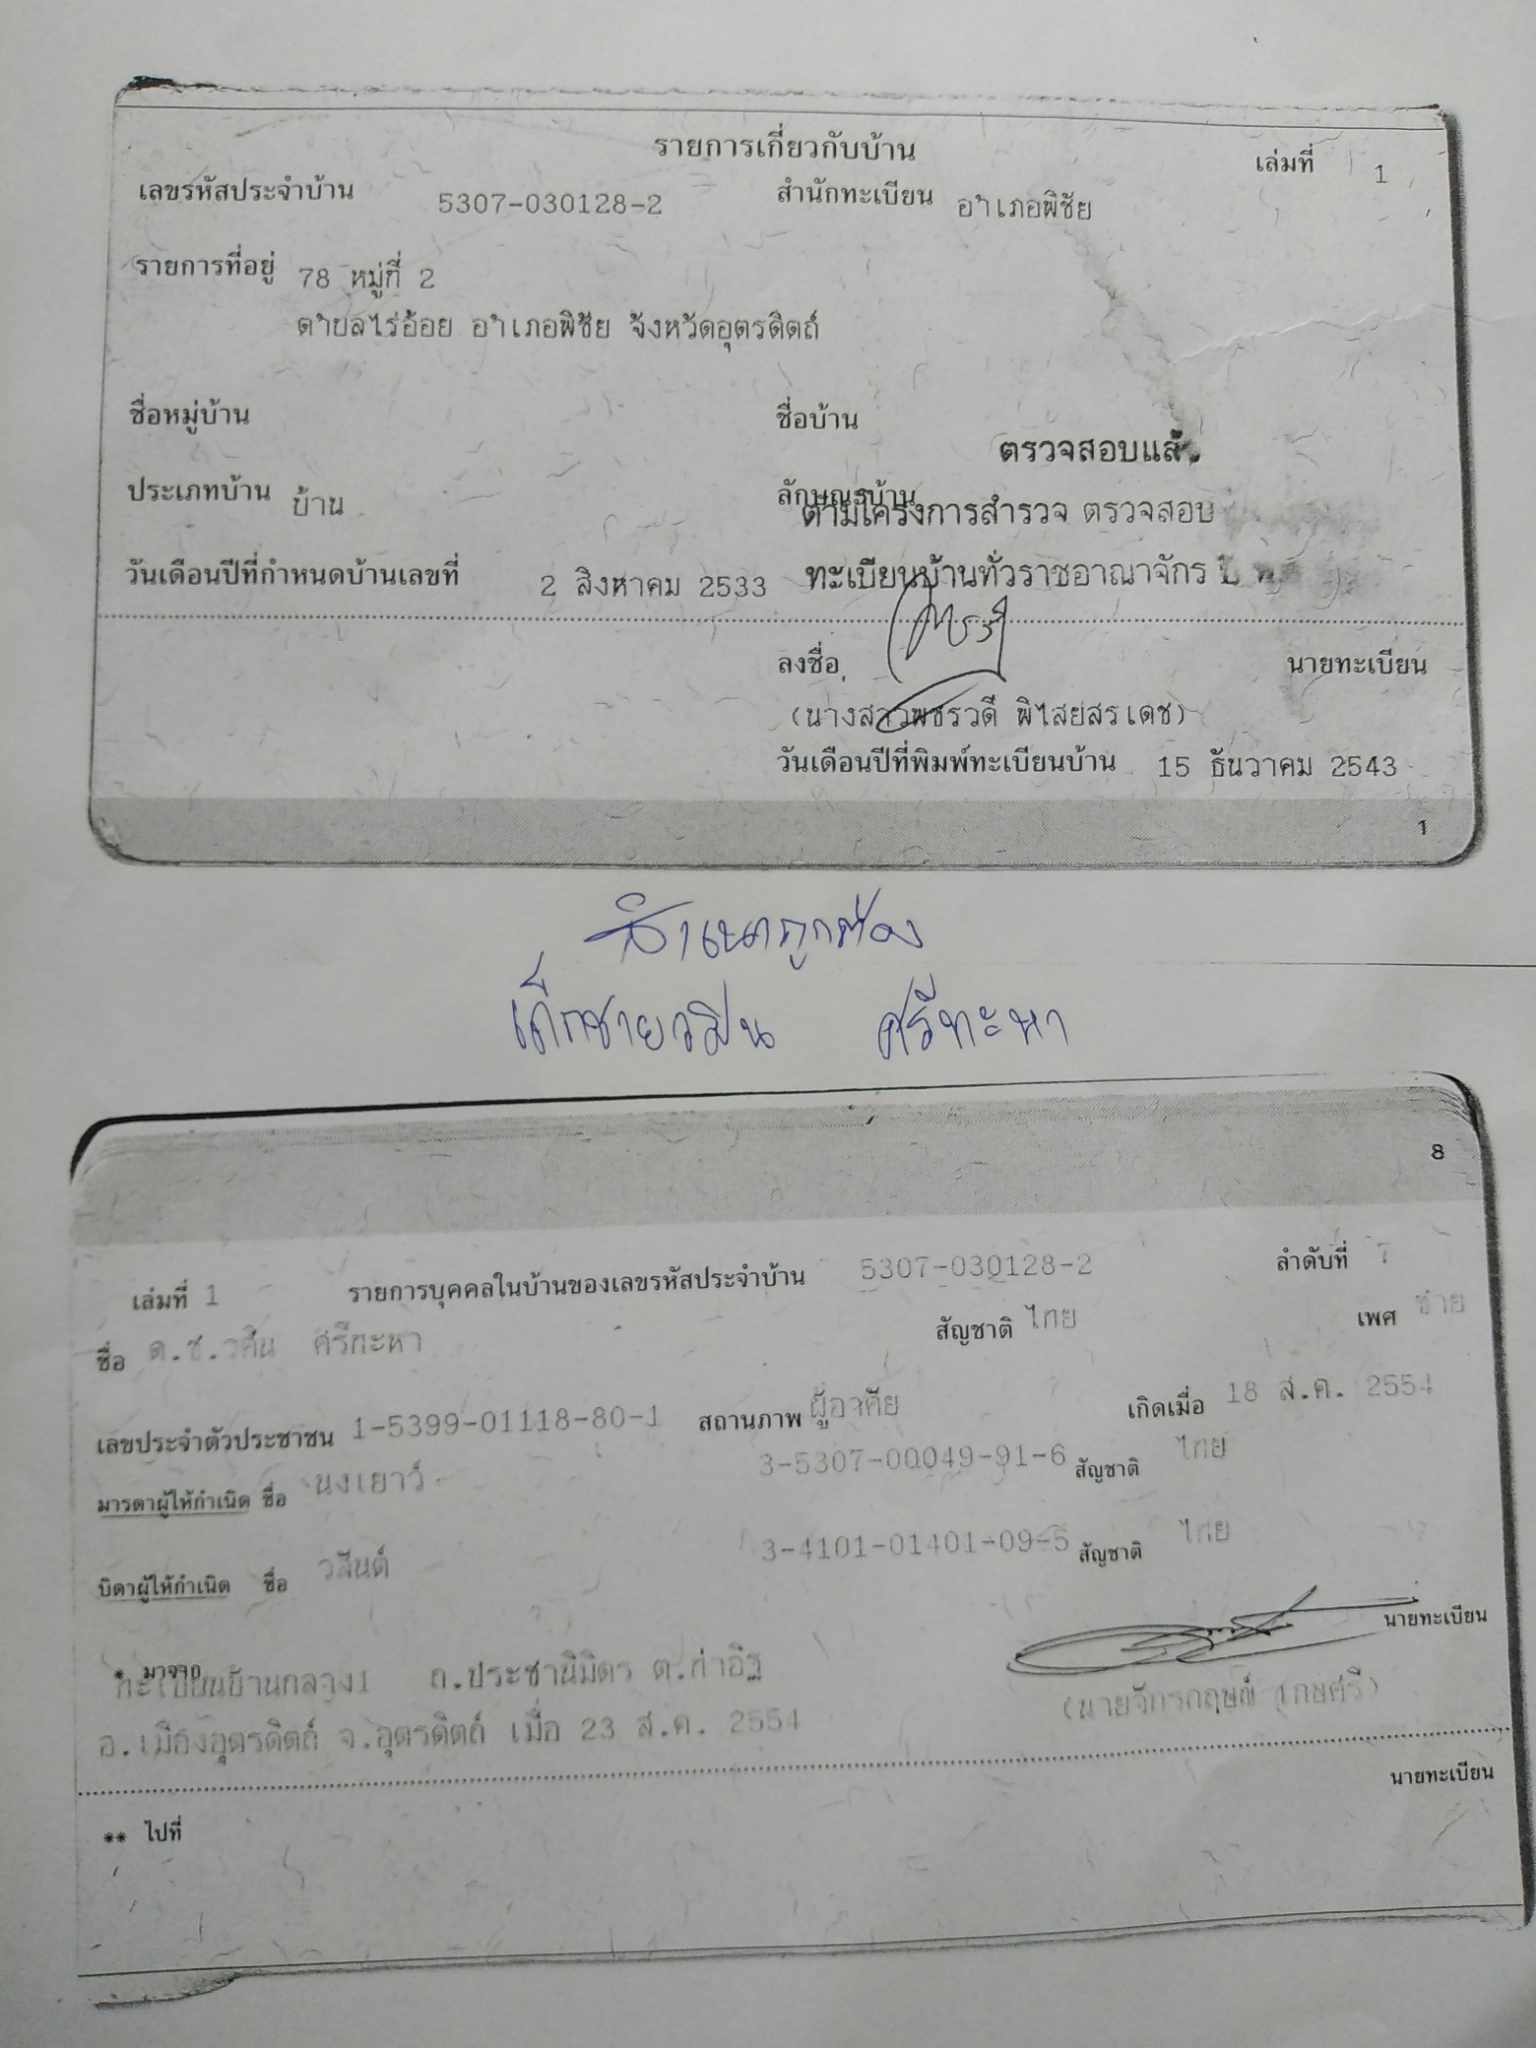 รายการเกี่ยวกับบ้าน เล่มที่ 1
เลขรหัสประจำบ้าน 5307-030128-2 สำนักทะเบียน อำเภอพิชัย
รายการที่อยู่ 78 หมู่ที่ 2
ตำบลไร่อ้อย อำเภอพิชัย จังหวัดอุตรดิตถ์
ชื่อหมู่บ้าน ชื่อบ้าน
ตรวจสอบแล้ว
ประเภทบ้าน บ้าน ลักษณะบ้าน
ตามโครงการสำรวจ ตรวจสอบ
ทะเบียนบ้านทั่วราชอาณาจักร
วันเดือนปีที่กำหนดบ้านเลขที่ 2 สิงหาคม 2533
ลงชื่อ นายทะเบียน
(นางสาวพชรวดี พิไสยสรเดช)
วันเดือนปีที่พิมพ์ทะเบียนบ้าน 15 ธันวาคม 2543
1
สำเนาถูกต้อง
เด็กชายวศิน ศรีทะหา
8
เล่มที่ 1 รายการบุคคลในบ้านของเลขรหัสประจำบ้าน 5307-030128-2 ลำดับที่ 7
ชื่อ ด.ช.วศิน ศรีทะหา สัญชาติ ไทย เพศ ชาย
เลขประจำตัวประชาชน 1-5399-01118-80-1 สถานภาพ ผู้อาศัย เกิดเมื่อ 18 ส.ค. 2554
มารดาผู้ให้กำเนิด ชื่อ นงเยาว์ 3-5307-00049-91-6 สัญชาติ ไทย
บิดาผู้ให้กำเนิด ชื่อ วสันต์ 3-4101-01401-09-5 สัญชาติ ไทย
* มาจาก นายทะเบียน
ทะเบียนบ้านกลาง1 ถ.ประชานิมิตร ต.ท่าอิฐ
(นายจักรกฤษณ์ เกษศรี)
อ.เมืองอุตรดิตถ์ จ.อุตรดิตถ์ เมื่อ 23 ส.ค. 2554
นายทะเบียน
** ไปที่